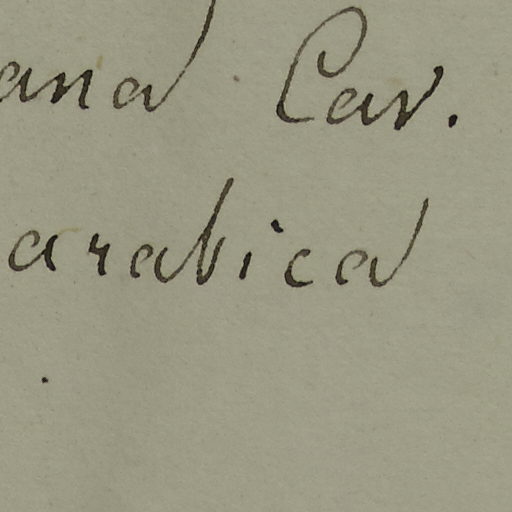 ana Cav.
arabica